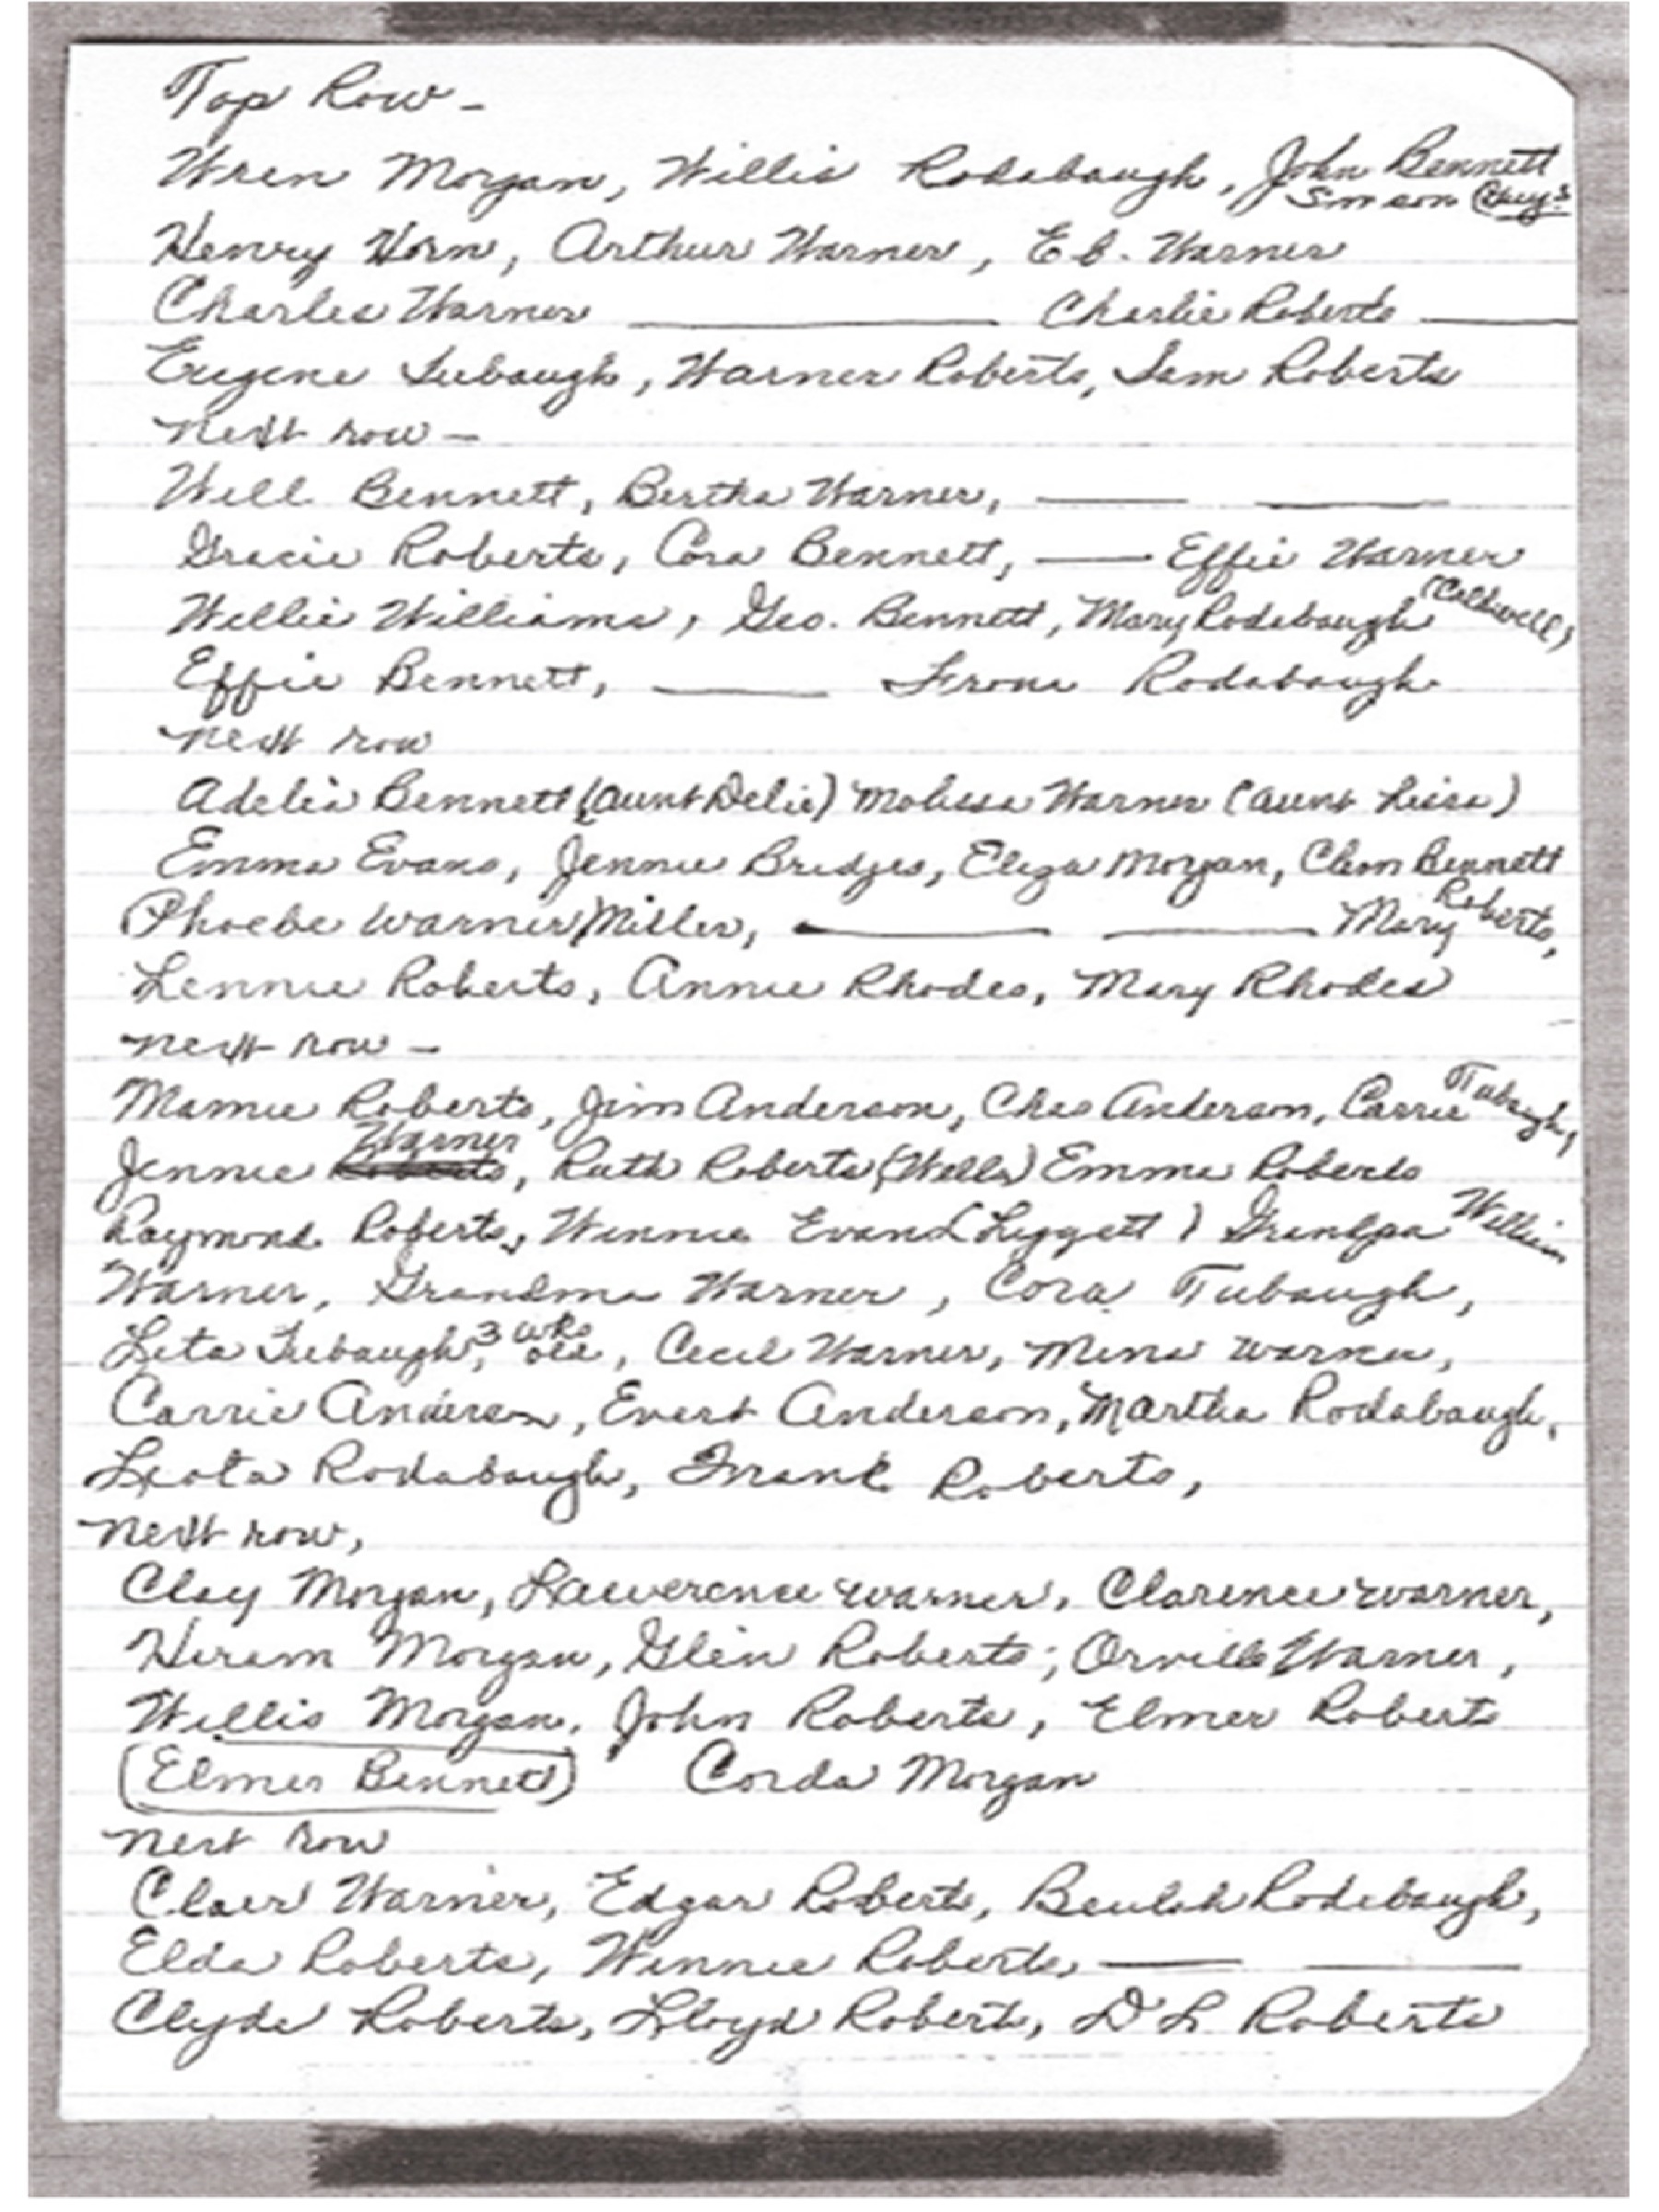 Top Row -
Wren Morgan, Willis Rodabaugh, John Bennett
Henry Horn, Arthur Warner, Eb. Warner
Charles Warner ——— Charlie Roberts ———
Eugene Tubaugh, Warner Roberts, Sam Roberts
Next row -
Will Bennett, Bertha Warner, ——— ———
Gracie Roberts, Cora Bennett, ——— Effie Warner
Willie Williams, Geo. Bennett, Mary Rodabaugh (Caldwell),
Effie Bennett, ——— Rodabaugh
Next row
Adelia Bennett (Aunt Delie) Melissa Warner (Aunt Lissa)
Emma Evans, Jennie Bridges, Eliza Morgan, Clem Bennett
Phoebe Warner Miller, ——— ——— Mary Roberts,
Lennie Roberts, Annie Rhodes, Mary Rhodes
Next row -
Mamie Roberts, Jim Anderson, Chas Anderson, Carrie Tubaugh,
Jennie Warner, Ruth Roberts (Wells) Emma Roberts
Raymond Roberts, Winnie Evans (Lyggett) Grandpa William
Warner, Grandma Warner, Cora Tubaugh,
Leta Tubaugh, 3 wks old, Cecil Warner, Mina Warner,
Carrie Anderson, Evert Anderson, Martha Rodabaugh,
Leota Rodabaugh, Frank Roberts,
Next row,
Clay Morgan, Lawerence Warner, Clarence Warner,
Hiram Morgan, Glen Roberts; Orville Warner,
Willis Morgan, John Roberts, Elmer Roberts
(Elmer Bennett) Corda Morgan
Next row
Clair Warner, Edgar Roberts, Beulah Rodabaugh,
Elda Roberts, Winnie Roberts, ——— ———
Clyde Roberts, Lloyd Roberts, D L Roberts